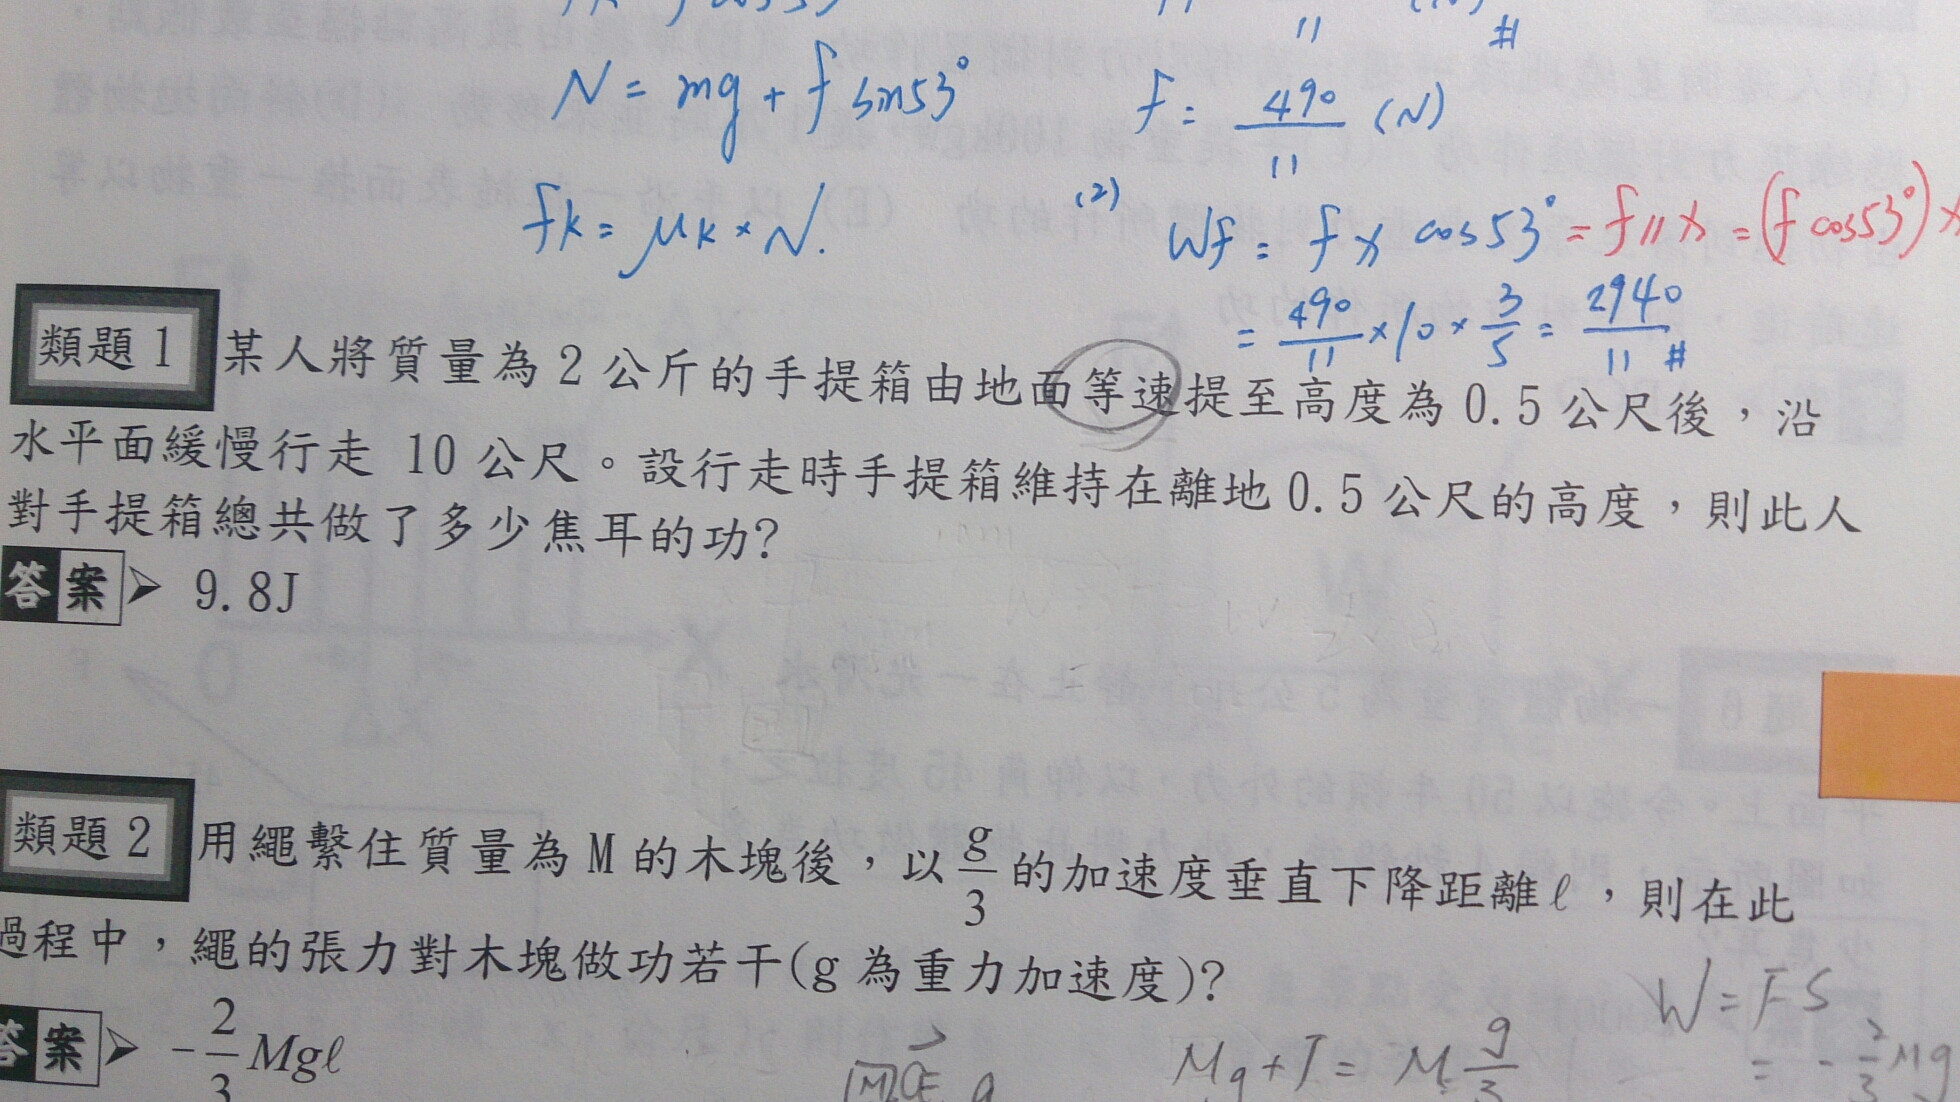 N = mg + f sin53°
f = 490/11 (N)
fk = μk × N.
(2) Wf = f x cos53° = f∥ x = (f cos53°) x
= 490/11 × 10 × 3/5 = 2940/11 #
類題1 某人將質量為2公斤的手提箱由地面等速提至高度為0.5公尺後，沿
水平面緩慢行走 10 公尺。設行走時手提箱維持在離地0.5公尺的高度，則此人
對手提箱總共做了多少焦耳的功?
答案 ➤ 9.8J
類題2 用繩繫住質量為M的木塊後，以 g/3 的加速度垂直下降距離ℓ，則在此
過程中，繩的張力對木塊做功若干(g為重力加速度)?
答案 ➤ -2/3 Mgℓ
W = FS
= - 2/3 Mg
Mg + T = M g/3